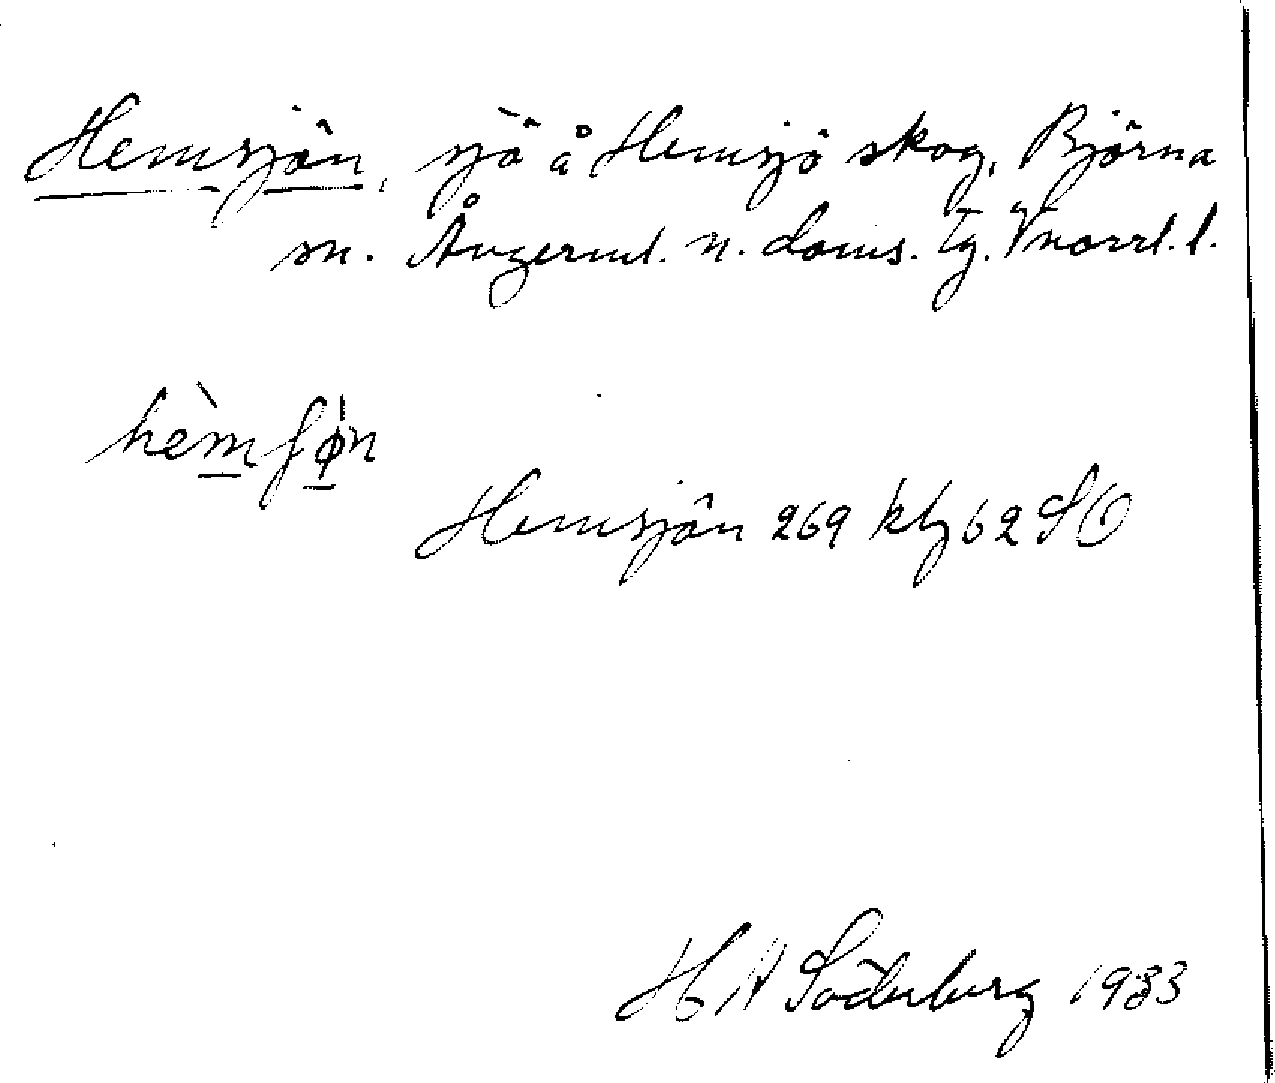 Hemsjön, sjö å Hemsjö skog, Björna
sn. Ångerml. n. doms. Tg. Vnorrl. l.
hèmʃø̀n
Hemsjön 269 kbl 62 SO
H A Söderberg 1933